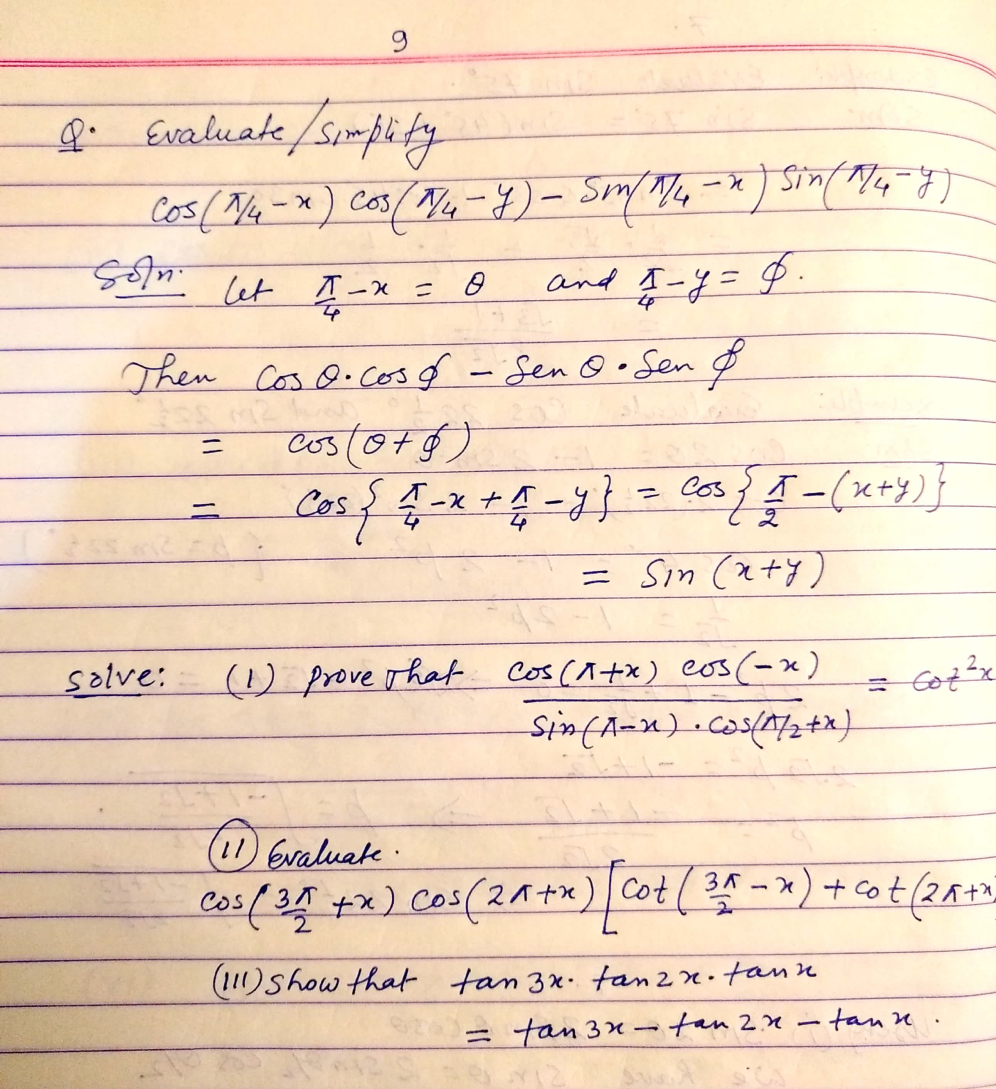 9
Q. Evaluate/Simplify
cos(π/4-x) cos(π/4-y) - Sin(π/4-x) Sin(π/4-y)
Soln. Let π/4-x = θ and π/4-y = ϕ.
Then Cos θ·cos ϕ - Sen θ·Sen ϕ
= cos(θ+ϕ)
= Cos{π/4-x+π/4-y} = Cos{π/2-(x+y)}
= Sin (x+y)
Solve: (1) prove that cos(π+x) cos(-x) / Sin(π-x)·cos(π/2+x) = cot²x
(11) Evaluate.
cos(3π/2+x) cos(2π+x)[cot(3π/2-x)+cot(2π+x)
(111) Show that tan3x·tan2x·tanx
= tan3x-tan2x-tanx.